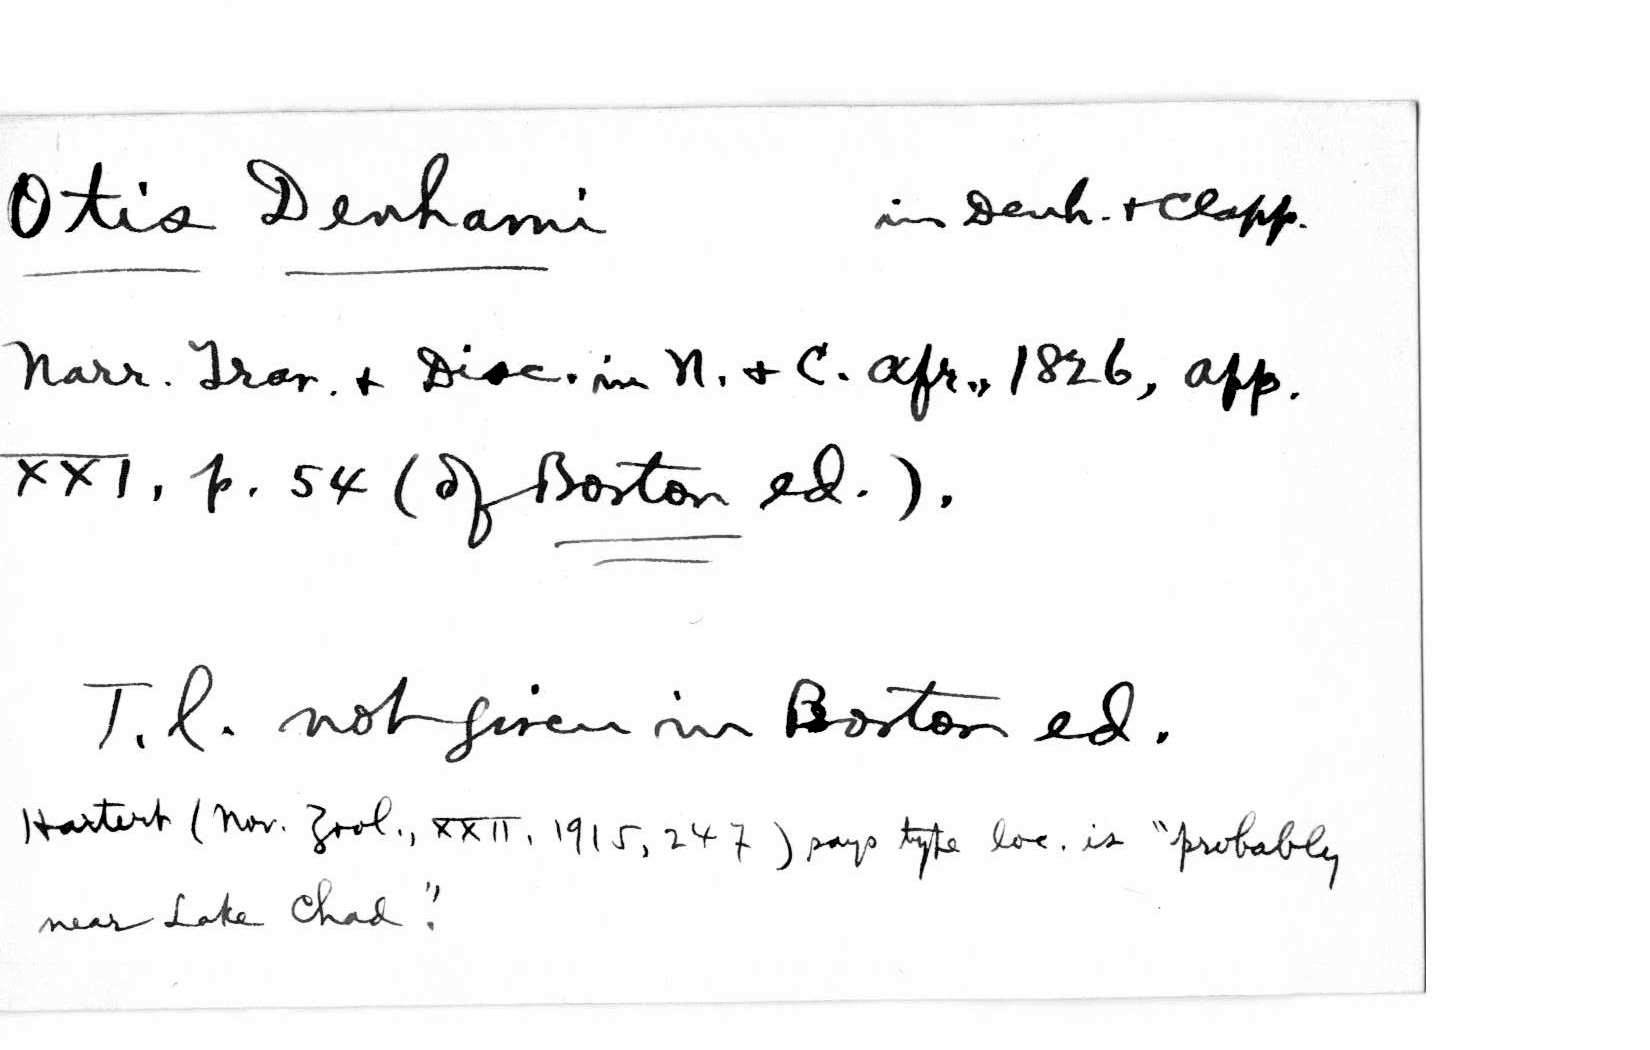 Otis Denhami in Denh. + Clapp.
Narr. Trav. + Disc. in N. + C. Afr., 1826, app.
XXI, p. 54 (of Boston ed.).
T. l. not given in Boston ed.
Hartert (Nov. Zool., XXII, 1915, 247) says type loc. is "probably
near Lake Chad".